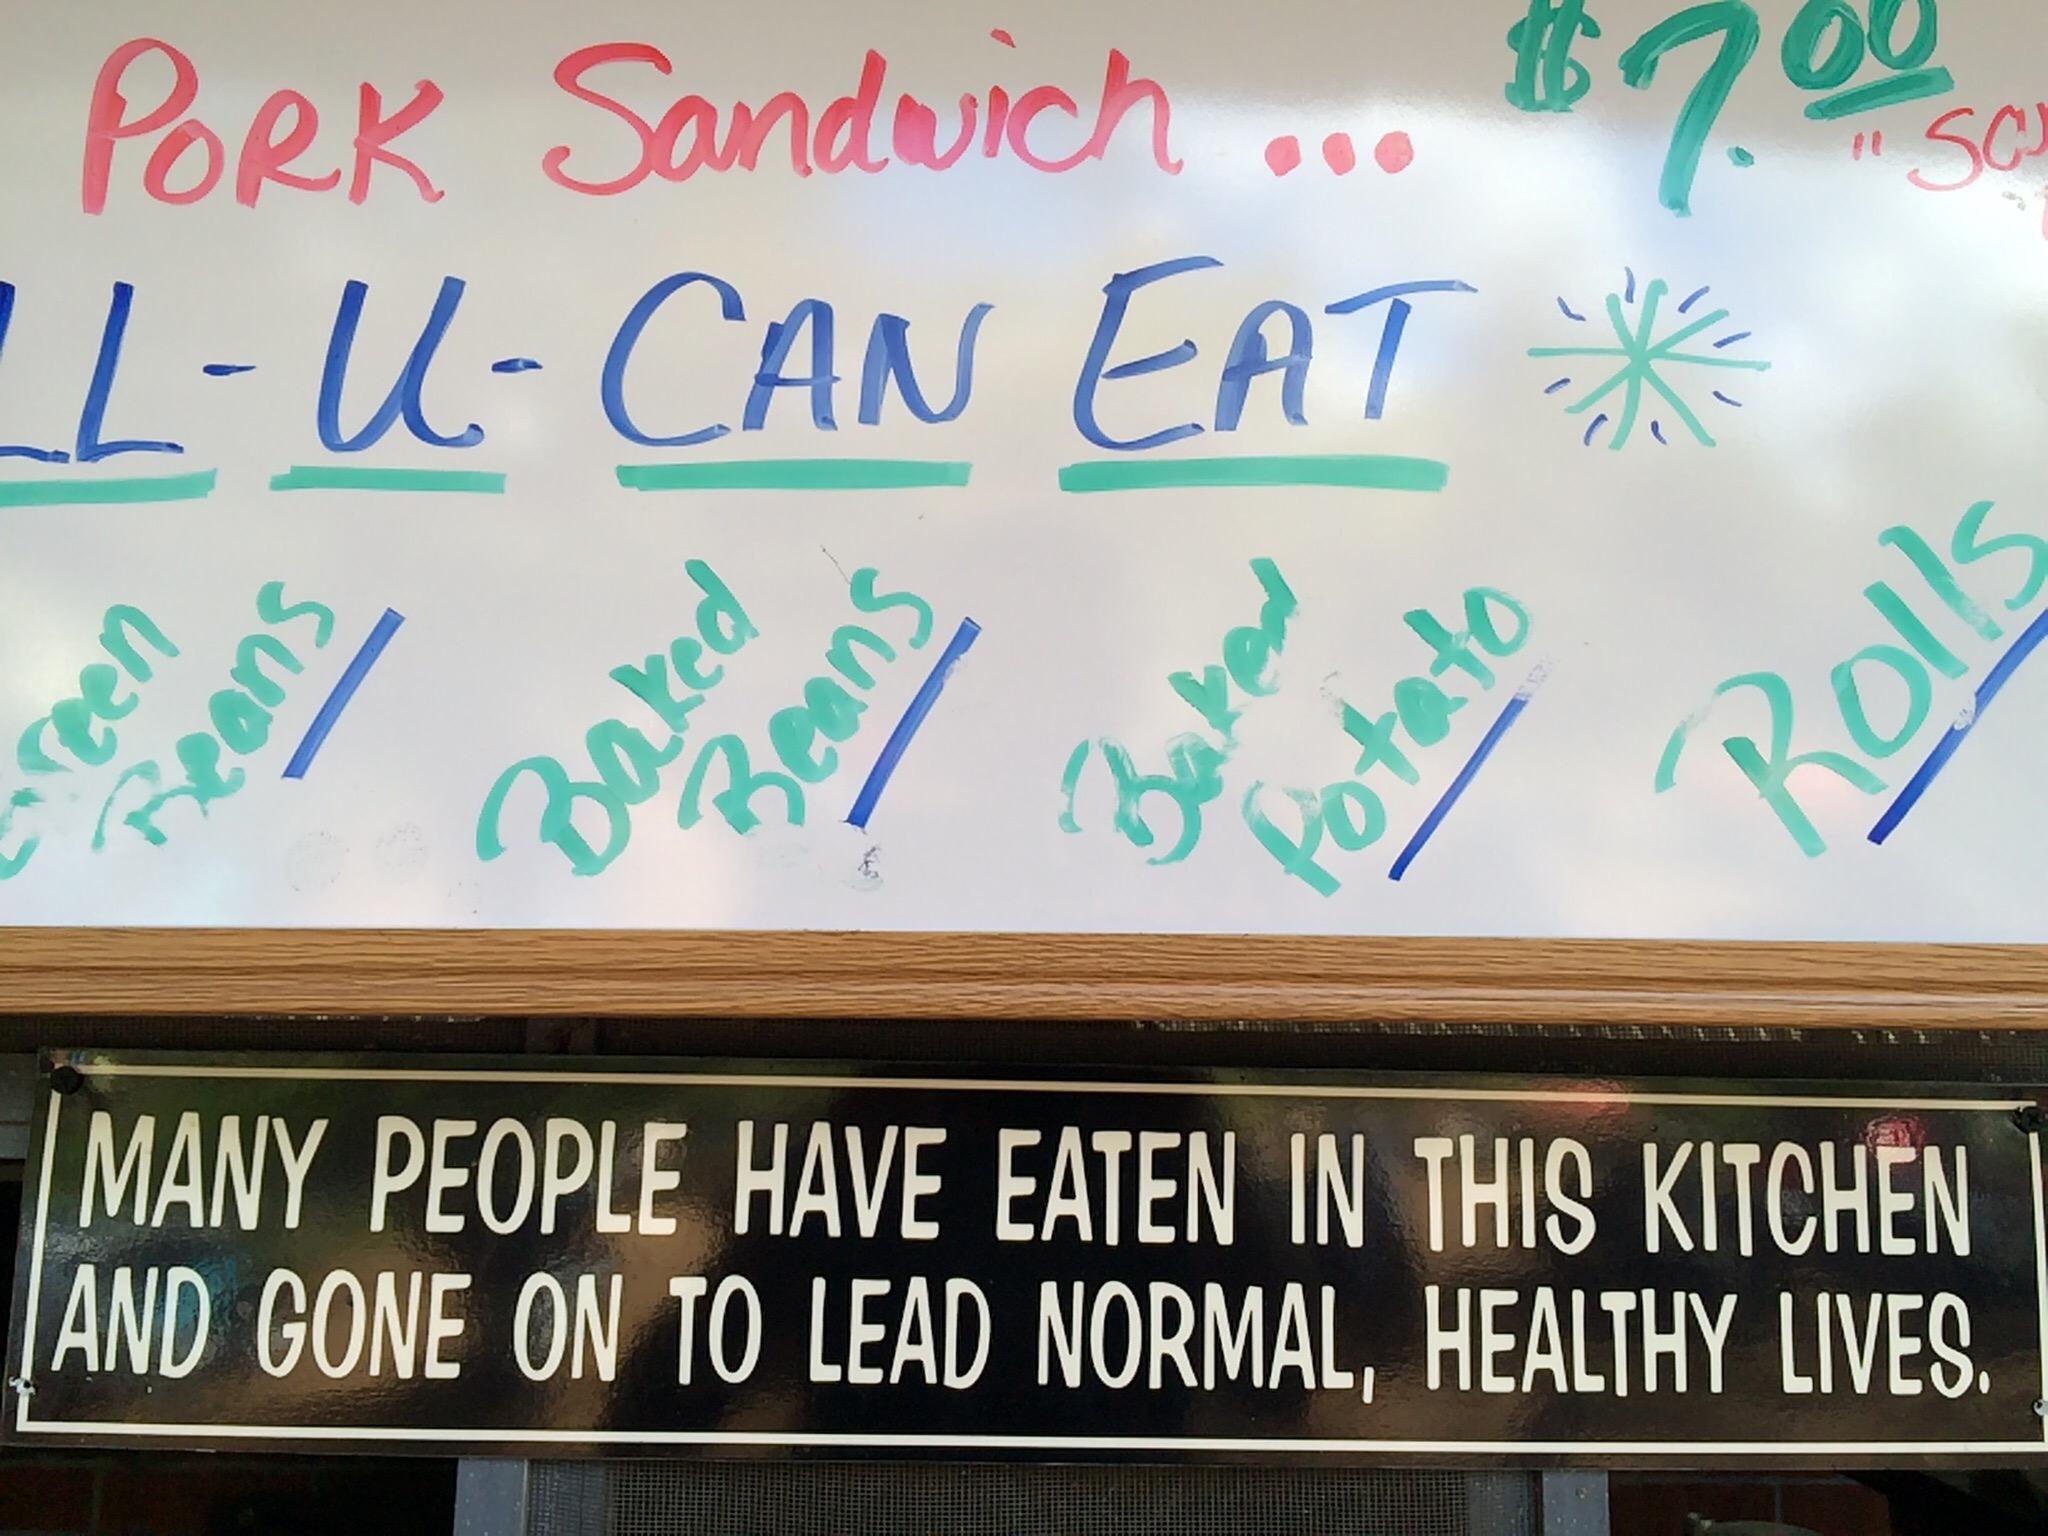 PORK Sandwich ... $7.00
LL-U-CAN EAT
reen Beans / Baked Beans / Baked Potato / Rolls /
MANY PEOPLE HAVE EATEN IN THIS KITCHEN
AND GONE ON TO LEAD NORMAL, HEALTHY LIVES.